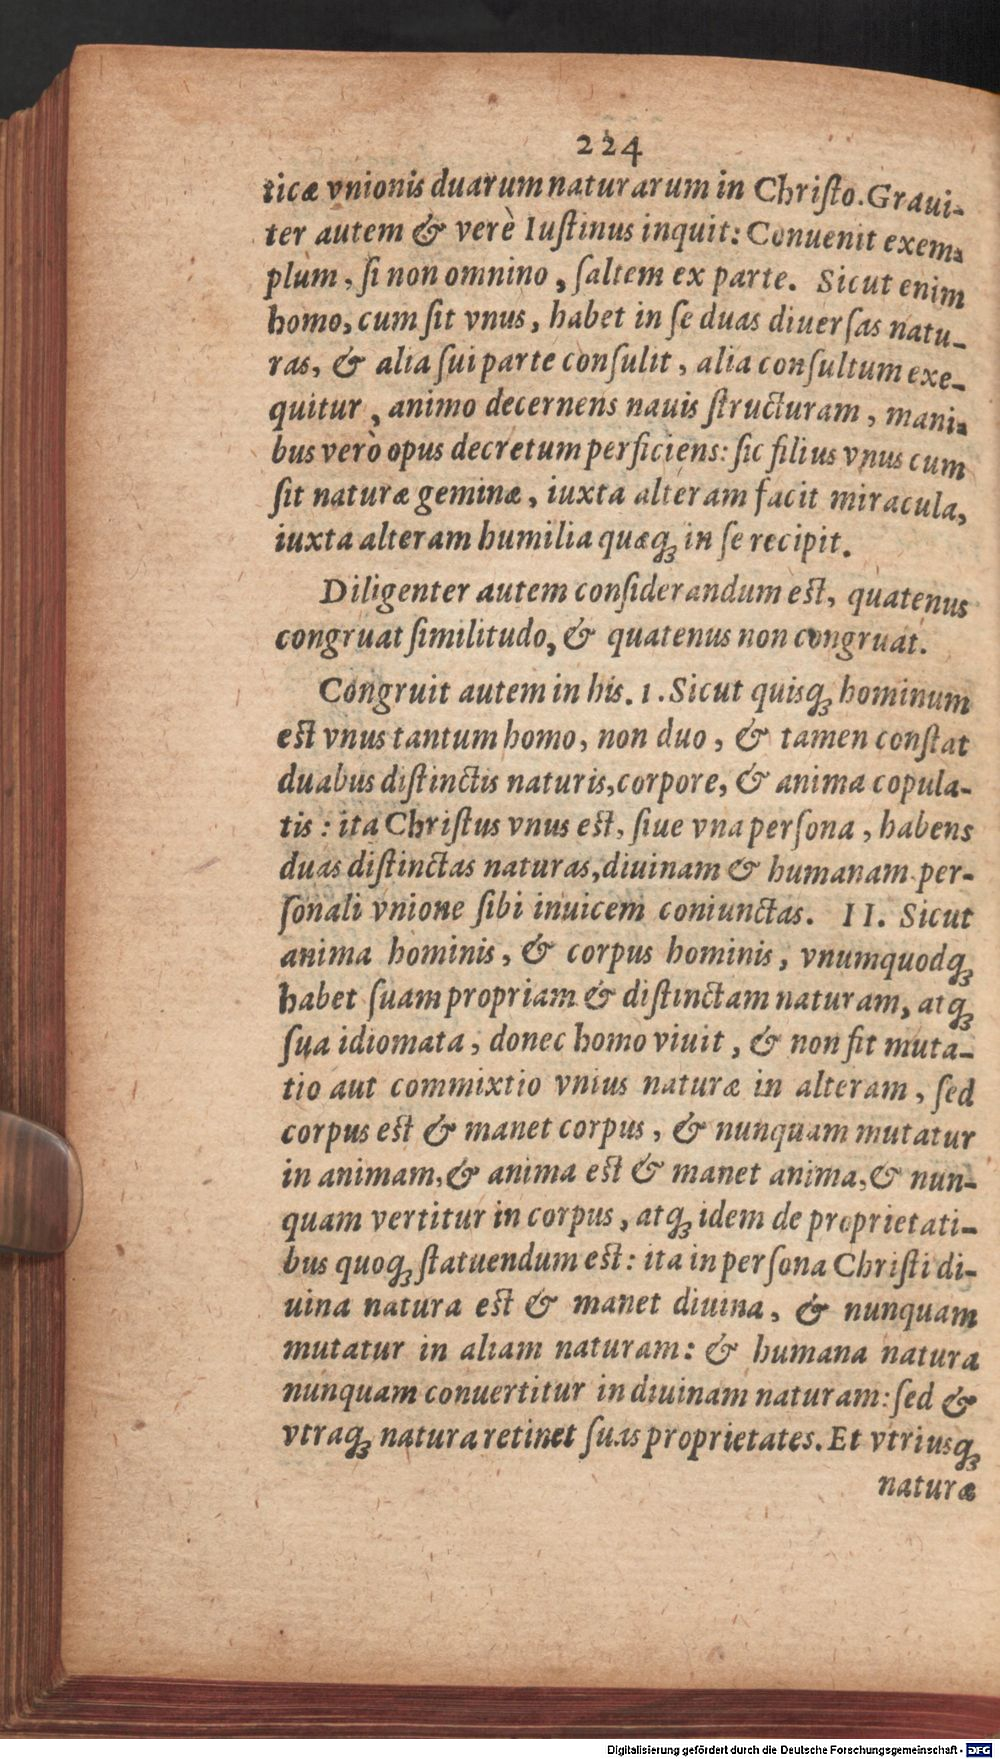 224
ticæ vnionis duarum naturarum in Chriſto. Graui-
ter autem & verè Iuſtinus inquit: Conuenit exem-
plum, ſi non omnino, ſaltem ex parte. Sicut enim
homo, cum ſit vnus, habet in ſe duas diuerſas natu-
ras, & alia ſui parte conſulit, alia conſultum exe-
quitur, animo decernens nauis ſtructuram, mani-
bus verò opus decretum perficiens: ſic filius vnus cum
ſit naturæ geminæ, iuxta alteram facit miracula,
iuxta alteram humilia quæq́; in ſe recipit.
Diligenter autem conſiderandum eſt, quatenus
congruat ſimilitudo, & quatenus non congruat.
Congruit autem in his. 1. Sicut quisq; hominum
eſt vnus tantum homo, non duo, & tamen conſtat
duabus diſtinctis naturis, corpore, & anima copula-
tis: ita Chriſtus vnus eſt, ſiue vna perſona, habens
duas diſtinctas naturas, diuinam & humanam per-
ſonali vnione ſibi inuicem coniunctas. II. Sicut
anima hominis, & corpus hominis, vnumquodq;
habet ſuam propriam & diſtinctam naturam, atq;
ſua idiomata, donec homo viuit, & non fit muta-
tio aut commixtio vnius naturæ in alteram, ſed
corpus eſt & manet corpus, & nunquam mutatur
in animam, & anima eſt & manet anima, & nun-
quam vertitur in corpus, atq; idem de proprietati-
bus quoq; ſtatuendum eſt: ita in perſona Chriſti di-
uina natura eſt & manet diuina, & nunquam
mutatur in aliam naturam: & humana natura
nunquam conuertitur in diuinam naturam: ſed &
vtraq; natura retinet ſuas proprietates. Et vtriusq;
naturæ
Digitalisierung gefördert durch die Deutsche Forschungsgemeinschaft - DFG